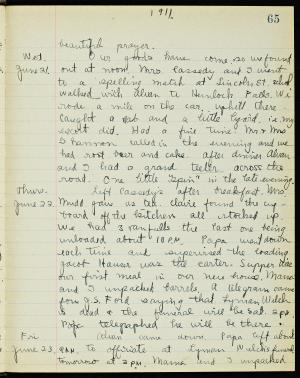 1911.
65
beautiful prayer.
Wed. Our goods have come, so we found
June 21. out at noon. Mrs. Cassedy and I went
to a spelling match at Lincoln St. school
walked with Alvan to Hemlock Falls. We
rode a mile on the car. Uphill there
caught a and a little lizard, i.e. my
escort did. Had a fine time. Mr & Mrs
Gannon called in the evening and we
had root beer and cake. After dinner Alvan
and I had a grand teeter across the
road. One little "spin" in the late evening.
Thurs. Left Cassedy's after breakfast. Mrs.
June 22. Mudd gave us tea. Claire found the cup-
board off the kitchen all stocked up.
We had 3 vanfulls the last one being
unloaded about 10 P.M. Papa went down
each time and supervised the loading
Jacob Hauser was the carter. Supper was
our first meal in our new house. Mama
and I unpacked barrels. A telegram came
from J.S. Ford saying that Lyman Welch
is dead & the funeral will be Sat. 2 P.M.
Papa telegraphed he will be there.
Fri. Alvan came down. Papa left about
June 23. 9 A.M. to officiate at Lyman Welch's funeral
tomorrow at 2 P.M. Mama and I unpacked